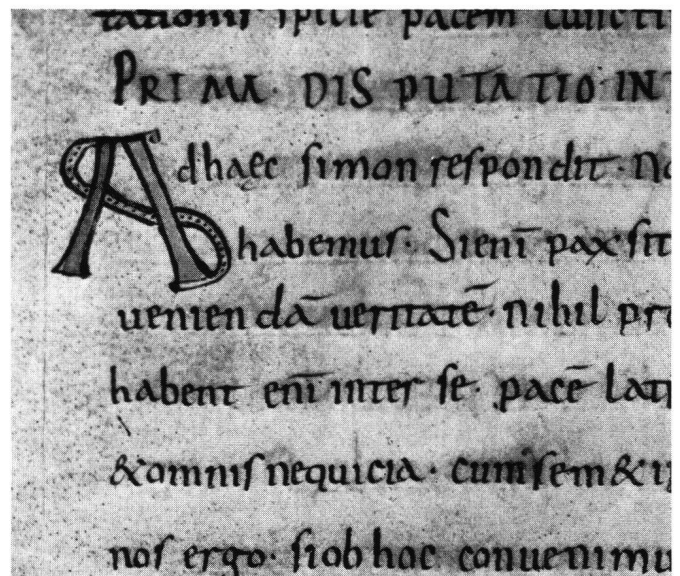 tationis ſpute pacem cuncti
PRIMA· DISPUTATIO IN
Adhaec ſimon reſpondit· No
habemus· Sienī pax ſit
uenien dā ueritatē· nihil pro
habent enī inter ſe· pacē latr
&omniſ nequicia· cum ſem& ip
noſ ergo· ſiob hoc conuenimu